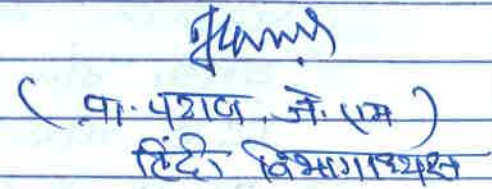 (प्रा. पठाण जे. एम)
हिंदी विभागाध्यक्ष